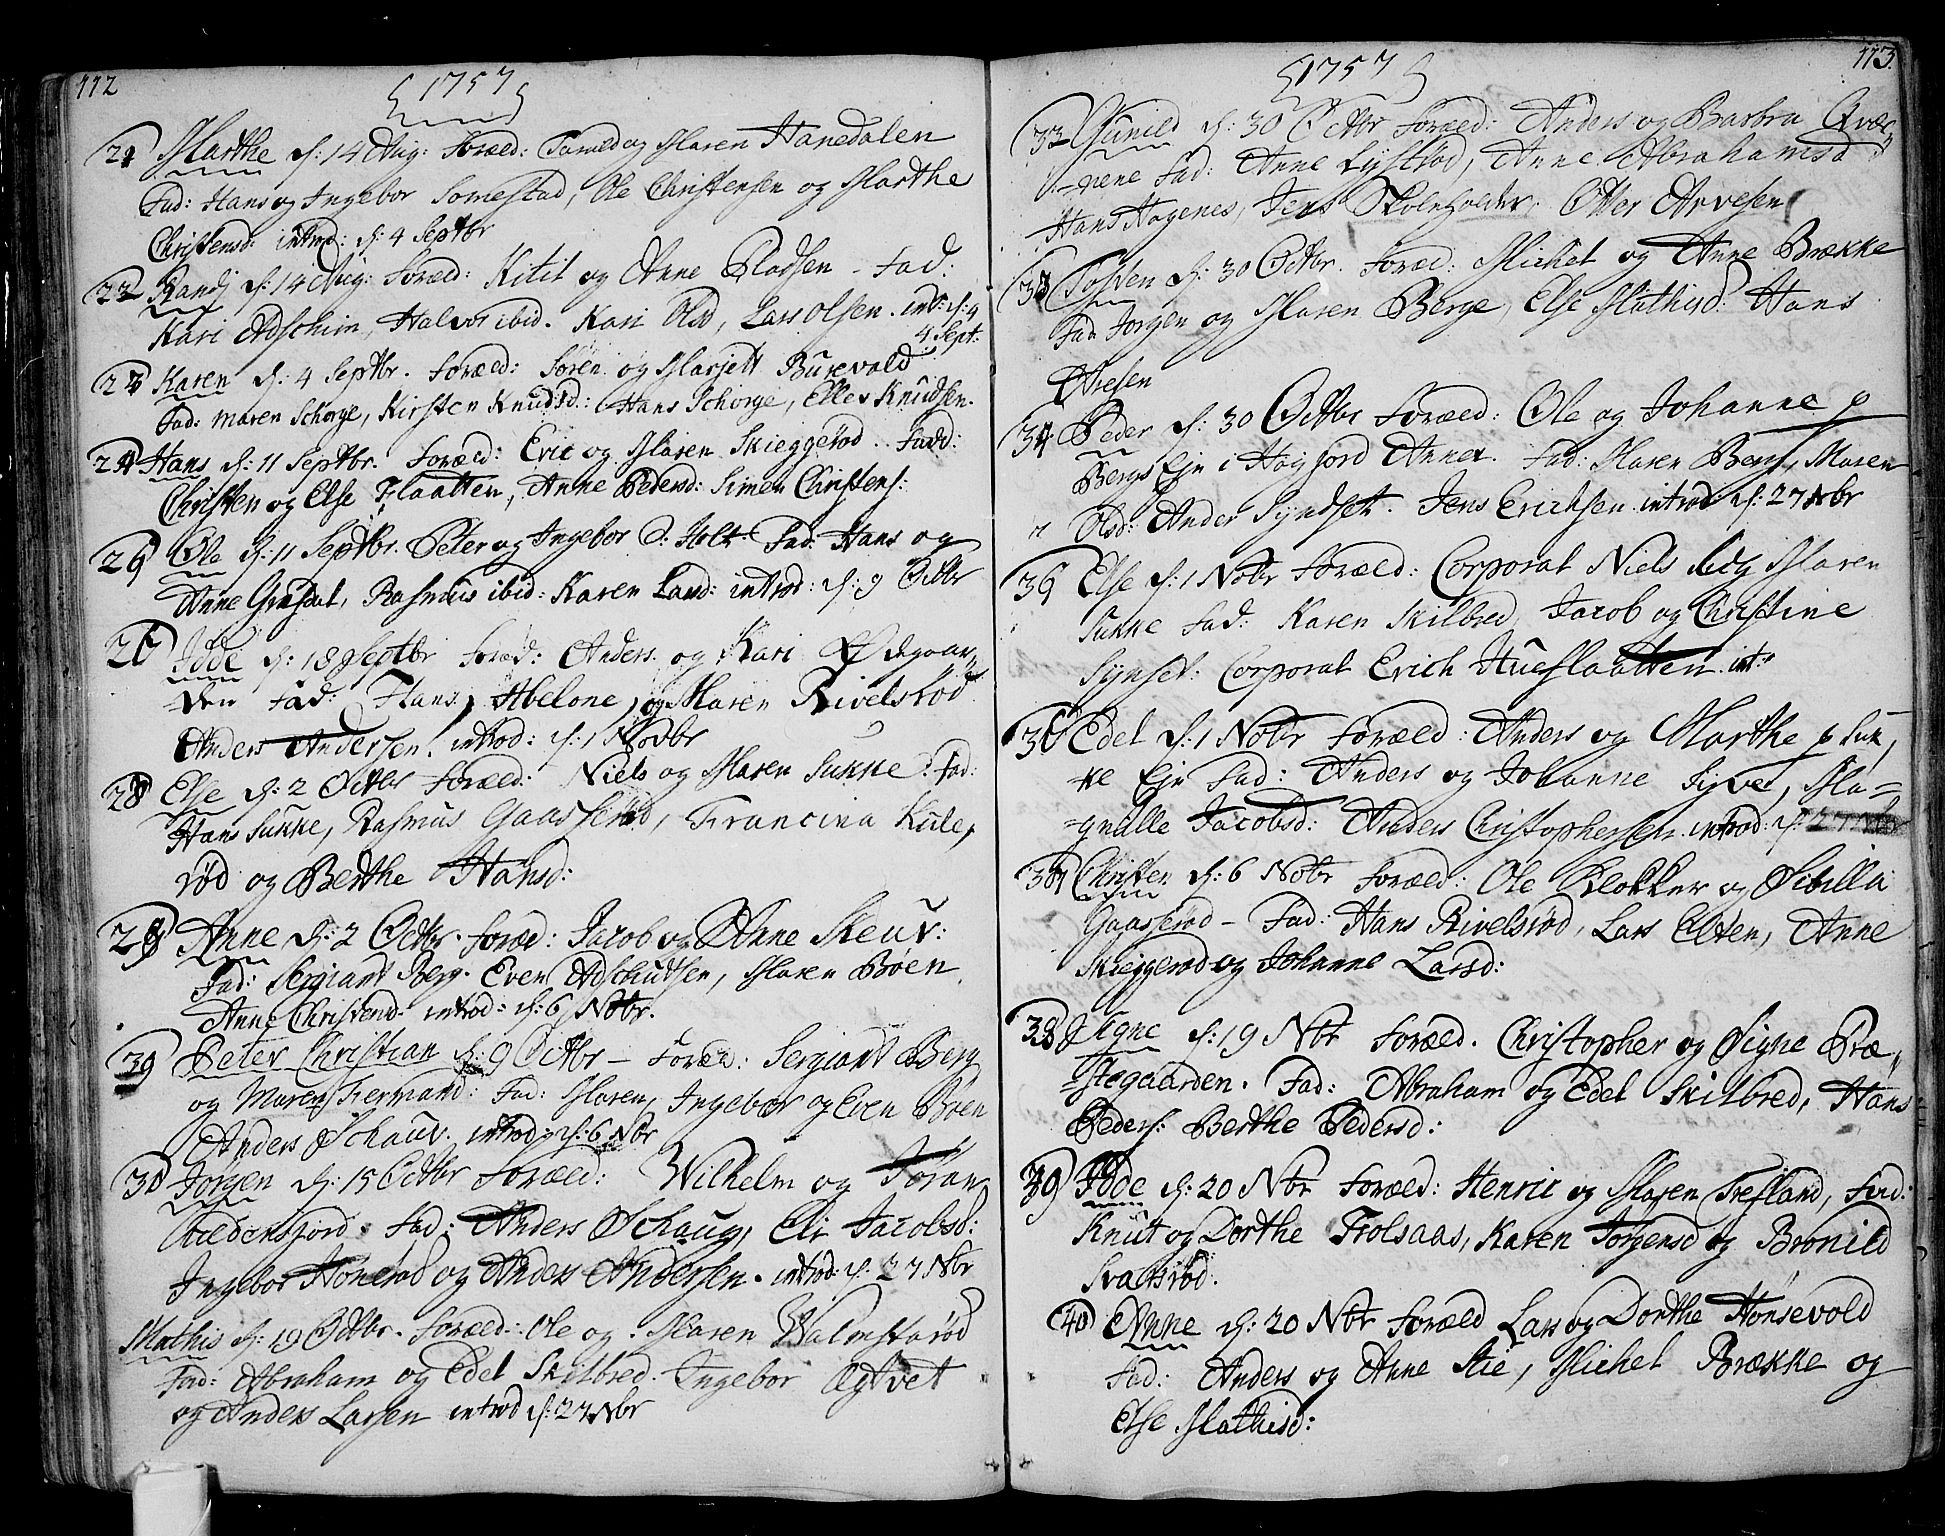 112
1757
21 Marthe d: 14 Aug: Foræld: Tarald og Maren Hanedalen
Fad: Hans og Ingebor Somestad, Ole Christensen og Marthe
Christensd: introd: d: 4 Septbr
22 Randj d: 14 Aug: Foræld: Kitil og Anne Pladsen - Fad:
Kari Adschim, Halvor ibid. Kari Olsd, Lars Olsen. int: d: 4
4 Sept:
23 Karen d: 4 Septbr. Foræld: Søren og Marjett Burevold
Fad: Maren Schorge, Kirsten Knudsd: Hans Schorge, Ellev Knudsen.
24 Hans d: 11 Septbr. Foræld: Eric og Maren Skieggerød. Fadd:
Christen og Else Flaatten, Anne Pedersd: Simen Christens:
26 Ole d: 11 Septbr. Peter og Ingebor Holt Fad: Hans og
Anne Grasdal, Rasmus ibid: Karen Land: introd: d: 9 Octbr
Idde d: 18 Septbr Foræld: Anders og Kari Ødegaar-
den Fad: Hans, Abelone, og Maren Rivelsrød
Anders Andersen. introd: d: 1 Novbr
28 Else d: 2 Octbr Foræld: Niels og Maren Sukke: Fad:
Hans Sukke, Rasmus Gaasserød, Francina Kile,
rød og Berthe Hansd:
29 Anne d: 2 Octbr. Foræld: Jacob og Anne Skeuv:
Fad: Sergiant Berg. Even Adschudsen, Maren Bøen
Anne Christensd. introd: d: 6 Nobr.
30 Peter Christian d: 9 Octbr - Foræld: Sergiant Berg
og Maren Fermand: Fad: Maren, Ingebor og Even Bøen
Anders Schauv. introd: d: 6 Nbr
31 Jørgen d: 15 Octbr Foræld: Wilhelm og Jøran
Fad: Anders Schaug, Eli Jacobsd:
Ingebor Hønerød og Anders Andersen. introd: d: 27 Nbr
Mathis d: 19 Octbr. Foræld: Ole og Maren Walmstarød
Fad: Abraham og Edel Skilbred. Ingebor Ægtvet
og Anders Larsen introd d: 27 Nbr
113
1757
32 Gunild d: 30 Octbr Foræld: Anders og Barbra Qvær-
nene Fad: Anne Lystrød, Anne Abrahamsd
Hans Hagenes, Jens Skoleholder. Otter Arvesen
33 Tosten d: 30 Octbr. Foræld: Michel og Anne Brække
Fad Jorgen og Maren Berge, Else Mathisd: Hans
Olesen
34 Peder d: 30 Octbr Foræld: Ole og Johanne p
Bergs Ejn i Høyjord Annex. Fad: Maren Berg, Maren
Olsd: Ander Syndset. Jens Ericksen introd: d: 27 Nbr
36 Else d: 1 Nobr Foræld: Corporal Niels og Maren
Sukke Fad: Karen Skilbred, Jacob og Christine
Synset: Corporal Erich Hueslaatten int:
36 Edel d: 1 Nobr Foræld: Anders og Marthe p Suk,
ke Ejn Fad: Anders og Johanne Syver, Ma=
gnille Jacobsd: Anders Christophersen introd: d: 27 Nbr
37 Christen d: 6 Nobr Foræld: Ole Klokker og Sibilla
Gaasserød - Fad: Hans Rivelsrød, Lars Elten, Anne
Skieggerød og Johanne Larsd:
38 Signe d: 19 Nbr Foræld. Christopher og Signe Præ-
stegaarden. Fad: Abraham og Edel Skilbred, Hans
Peders: Berthe Pedersd:
39 Idde d: 20 Nbr Foræld: Henric og Maren Trefland, Fad:
Knut og Dorthe Trolsaas, Karen Jørgensd og Bronild
Svartsrød.
40 Anne d: 20 Nbr Foræld Lars og Dorthe Hønsevold
Fad: Anders og Anne Stie, Michel Brække og
Else Mathisd: